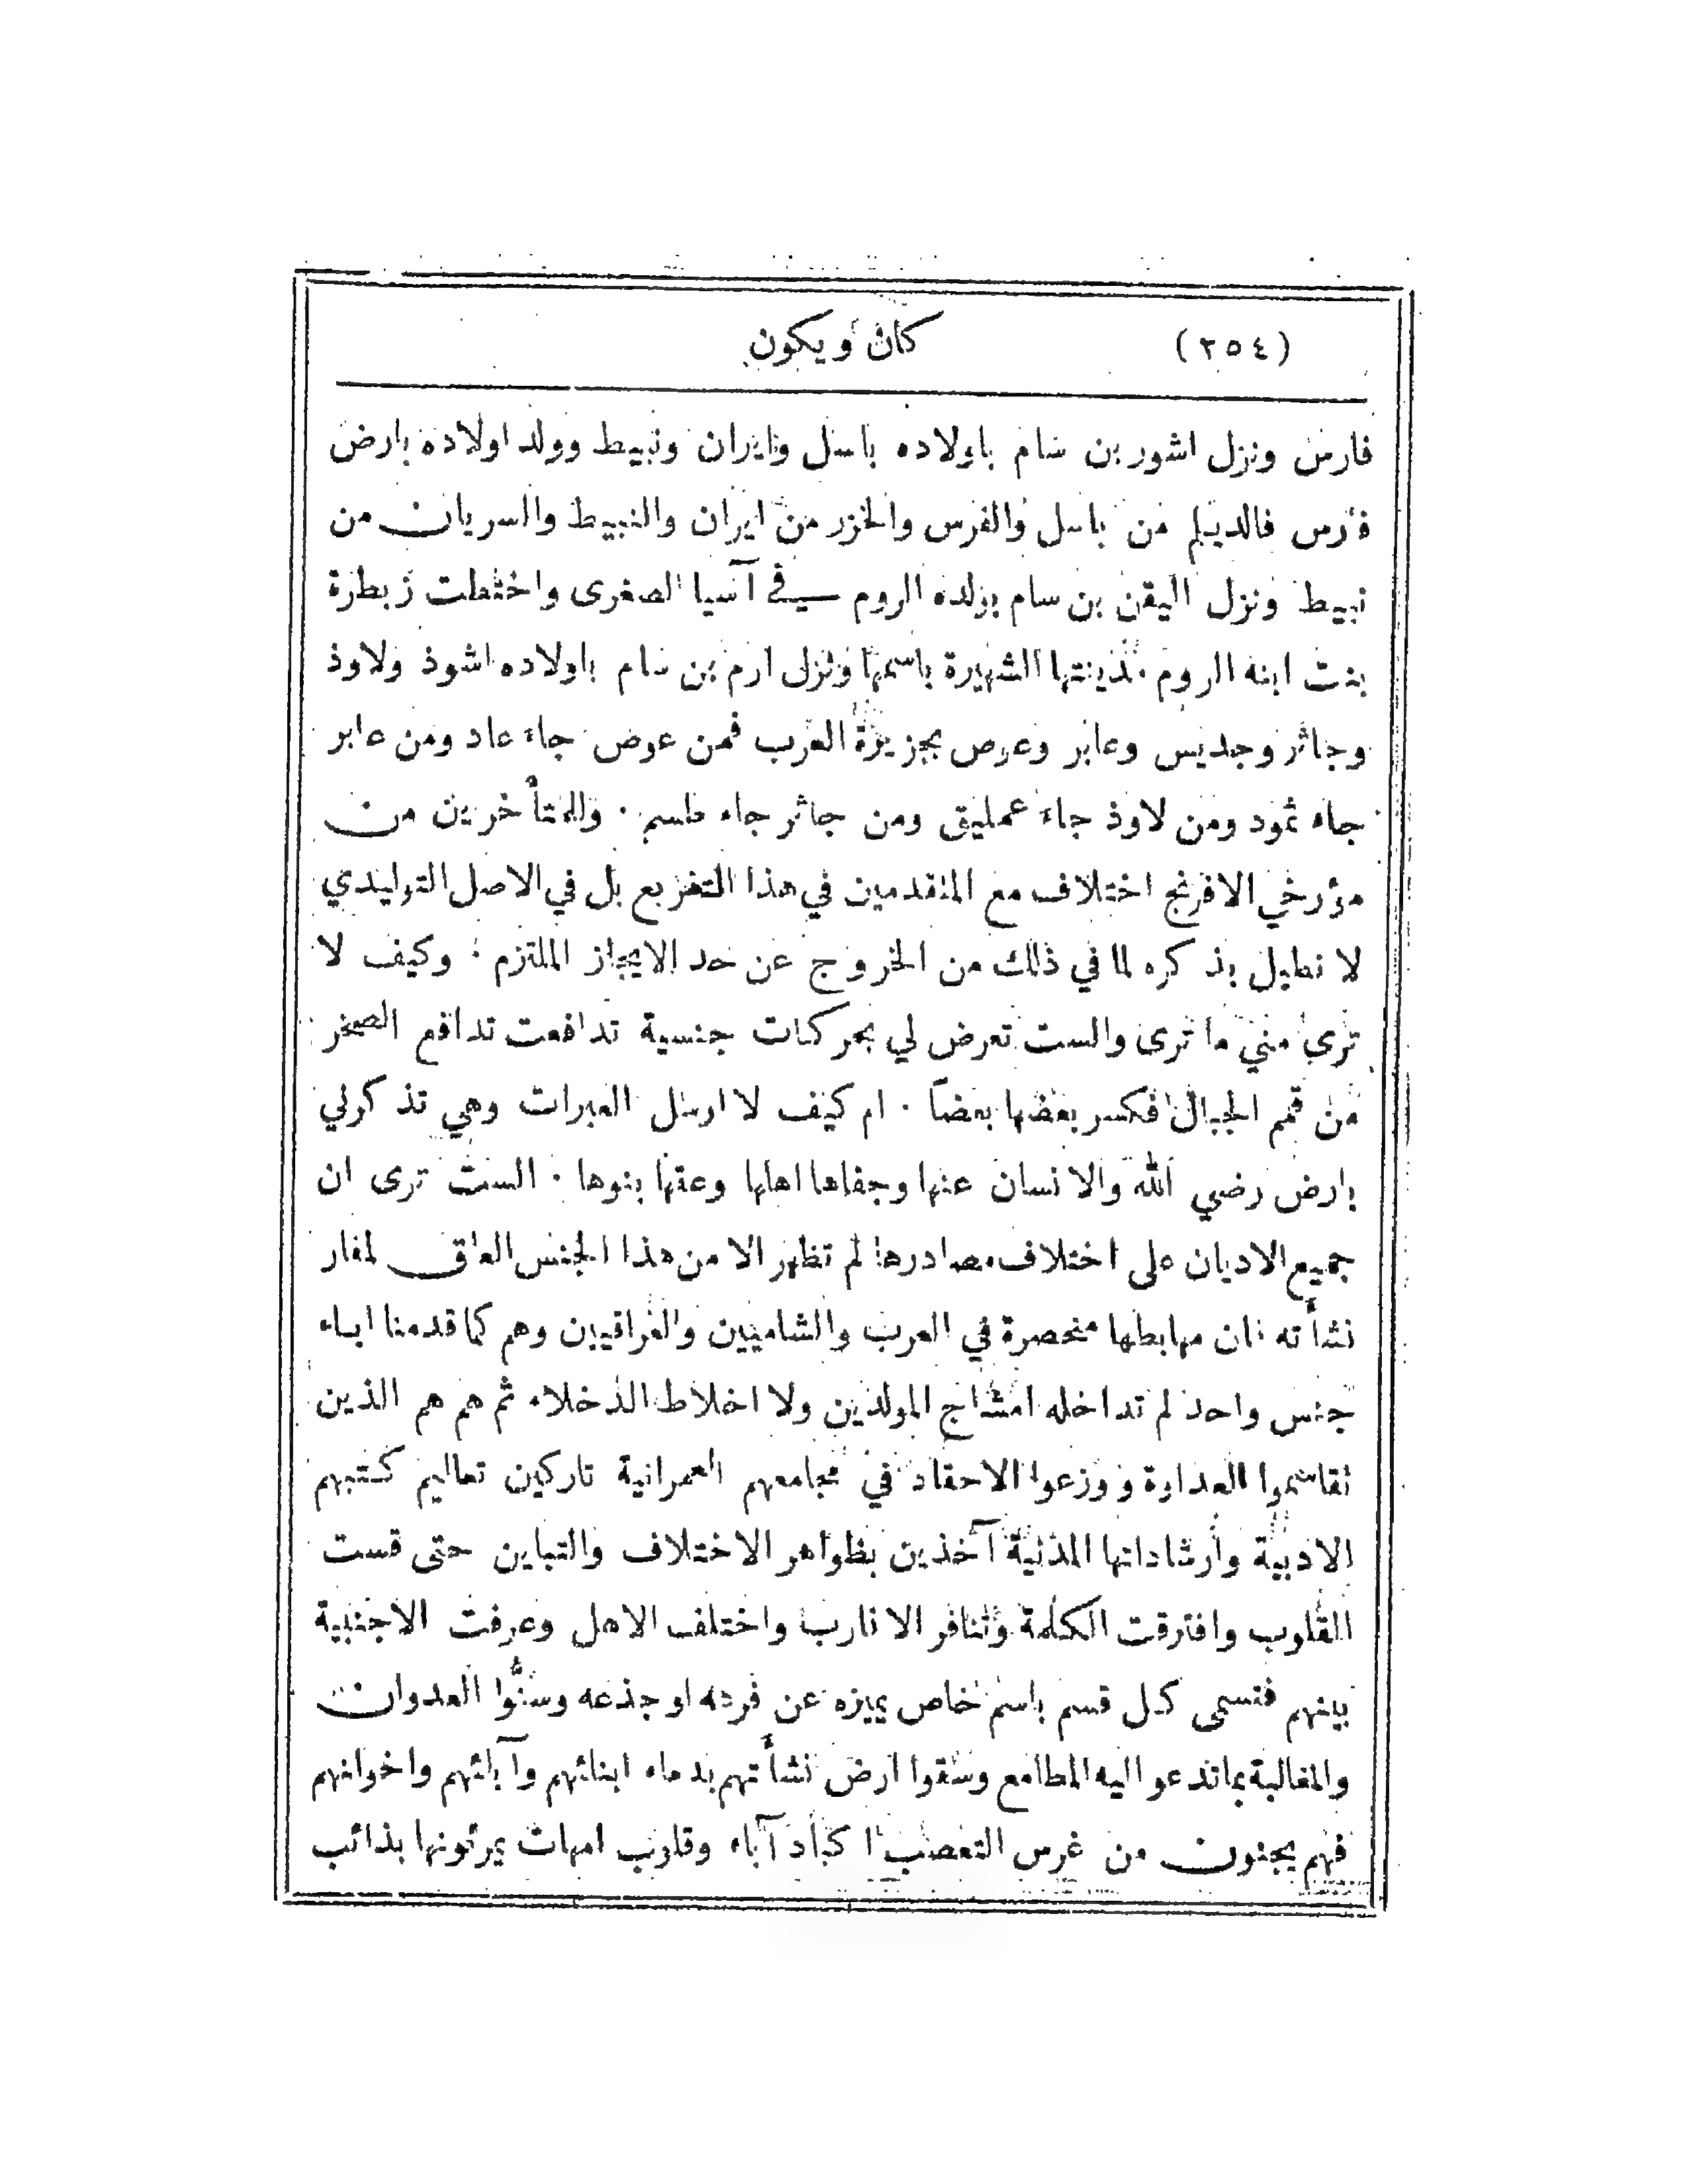 (٢٥٤) كان ويكون
فارس ونزل اشور بن سام باولاده باسل وايران ونبيط وولد اولاده بارض
فارس فالديلم من باسل والفرس والخزر من ايران والنبيط والسريان من
نبيط ونزل اليقن بن سام بولده الروم في آسيا الصغرى واختطت زبطرة
بنت ابنه الروم مدينتها الشهيرة باسمها ونزل ارم بن سام باولاده اشوذ ولاوذ
وجاثر وجديس وعابر وعوص بجزيرة العرب فمن عوض جاء عاد ومن عابر
جاء ثمود ومن لاوذ جاء عمليق ومن جاثر جاء طسم · وللمتأخرين من
مؤرخي الافرنج اختلاف مع المتقدمين في هذا التفريع بل في الاصل التوليدي
لا نطيل بذكره لما في ذلك من الخروج عن حد الايجاز الملتزم · وكيف لا
ترى مني ما ترى والست تعرض لي بحركات جنسية تدافعت تدافع الصخر
من قمم الجبال فكسر بعضها بعضاً · ام كيف لا ارسل العبرات وهي تذكرني
بارض رضي الله والانسان عنها وجفاها اهلها وعقها بنوها · الست ترى ان
جميع الاديان على اختلاف مصادرها لم تظهر الا من هذا الجنس العاق لمغار
نشأته فان مهابطها منحصرة في العرب والشاميين والعراقيين وهم كما قدمنا ابناء
جنس واحد لم تداخله امشاج المولدين ولا اخلاط الدخلاء ثم هم هم الذين
تقاسموا العداوة ووزعوا الاحقاد في مجامعهم العمرانية تاركين تعاليم كتبهم
الادبية وارشاداتها المدنية آخذين بظواهر الاختلاف والتباين حتى قست
القلوب وافترقت الكلمة وتنافر الاقارب واختلف الاهل وعرفت الاجنبية
بينهم فتسمى كل قسم باسم خاص يميزه عن فرده او جذعه وسنُّوا العدوان
والمغالبة بما تدعو اليه المطامع وسقوا ارض نشأتهم بدماء ابنائهم وآبائهم واخوانهم
فهم يجنون من غرس التعصب اكباد آباء وقلوب امهات يمرئونها بذائب